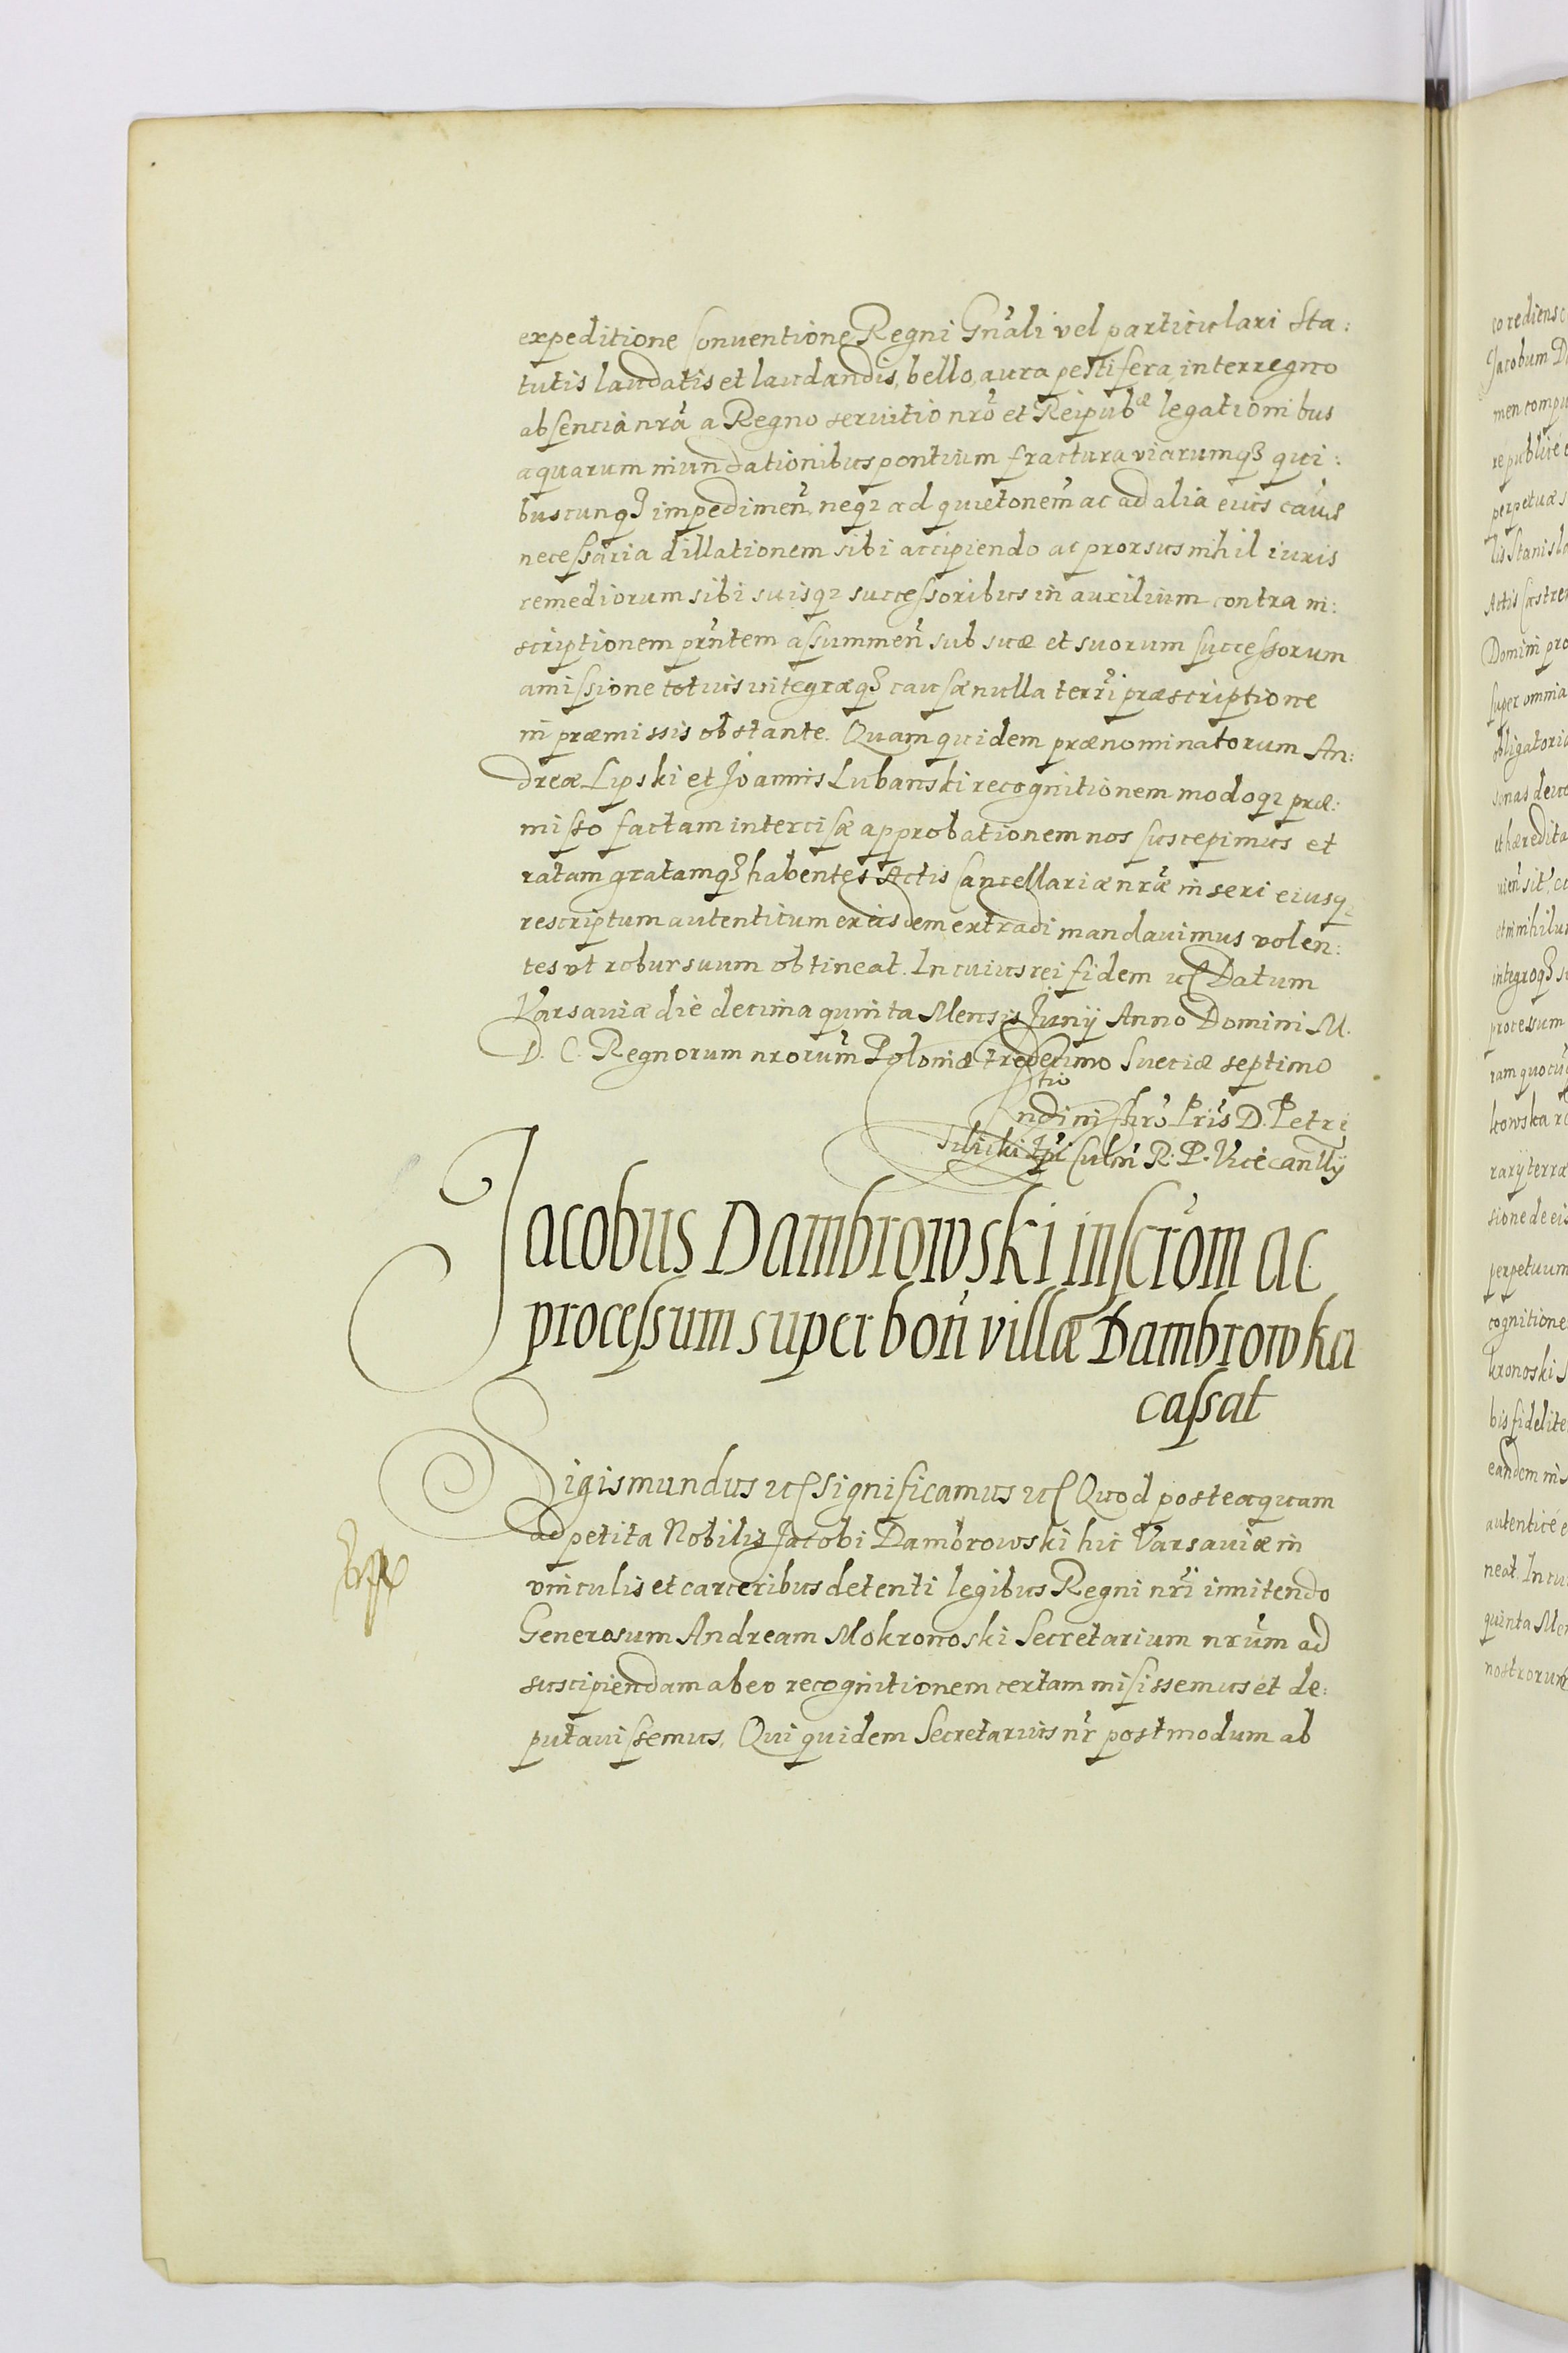 expeditione Conventione Regni Gnãli vel particulari Sta:
tutis laudatis et laudandis, bello, aura pestifera, interregno
absentia nrã a Regno servitio nrõ et Reipubcæ legationibus
aquarum inundationibus pontium fractura viarumq3 qui:
buscunq3 impedimeñ, neq3 ad quietonem̃ ac ad alia euis caũs
necessaria dillationem sibi accipiendo ac prorsus nihil iuris
remediorum sibi suisq3 successoribus in auxilium contra in:
scriptionem prñtem assummeñ sub suæ et suorum successorum
amissione totius integræq3 causæ nulla terrĩ præscriptione
in præmissis obstante. Quam quidem prænominatorum An:
dreæ Lipski et Joannis Lubanski recognitionem modoq3 præ:
misso factam intercisæ approbationem nos suscepimus et
ratam gratamq3 habentes Actis Cancellariæ nrãe inseri eiusq3
rescriptum autenticum ex eisdem extradi mandavimus volen:
tes ut robur suum obtineat. In cuius rei fidem etc Datum
Varsaviæ die decima quinta Mensis Junij Anno Domini M.
D. C. Regnorum nrorum̃ Poloniæ tredecimo Sueciæ septimo
tio
ndi in Chrõ Pris D. Petri
Tilicki Epi Culm̃ R. P. Vicecanllij
Jacobus Dambrowski inscrõm ac
processum super boñ villæ Dambrowka
cassat
Sigismundus etc Significamus etc Quod posteaquam
ad petita Nobilis Jacobi Dambrowski hic Varsaviæ in
vinculis et carceribus detenti legibus Regni nrĩ innitendo
Generosum Andream Mokronoski Secretarium nrũm ad
suscipiendam ab eo recognitionem certam misissemus et de:
putavissemus. Qui quidem Secretarius nr̃ postmodum ab
co rediens c
Jacobum D
men compu
re publice
perpetuæ s
lis Stanisla
Actis Castren
Domini pro
super omnia
obligatoria
sonas de
et hæredita
sit, c
et in nihilu
integroq3 su
processum
ram quocũ
kowska r
rarij terræ
sione de eis
perpetuum
cognitione
kronoski S
bis fidelite
eandem ins
autentice e
neat. In cui
quinta Men
nostrorum